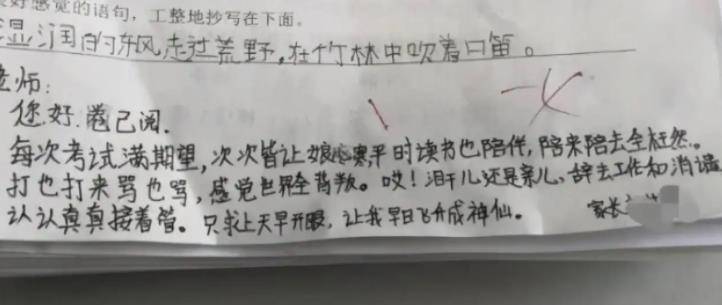 好感觉的语句，工整地抄写在下面。
湿润的东风走过荒野，在竹林中吹着口笛。
老师：
您好。卷已阅。
每次考试满期望，次次皆让娘心寒平时读书也陪伴，陪来陪去全枉然。
打也打来骂也骂，感觉世界全背叛。哎！泪干儿还是亲儿，辞去工作和消遣
认认真真接着管。只求上天早开眼，让我早日飞升成神仙。
家长